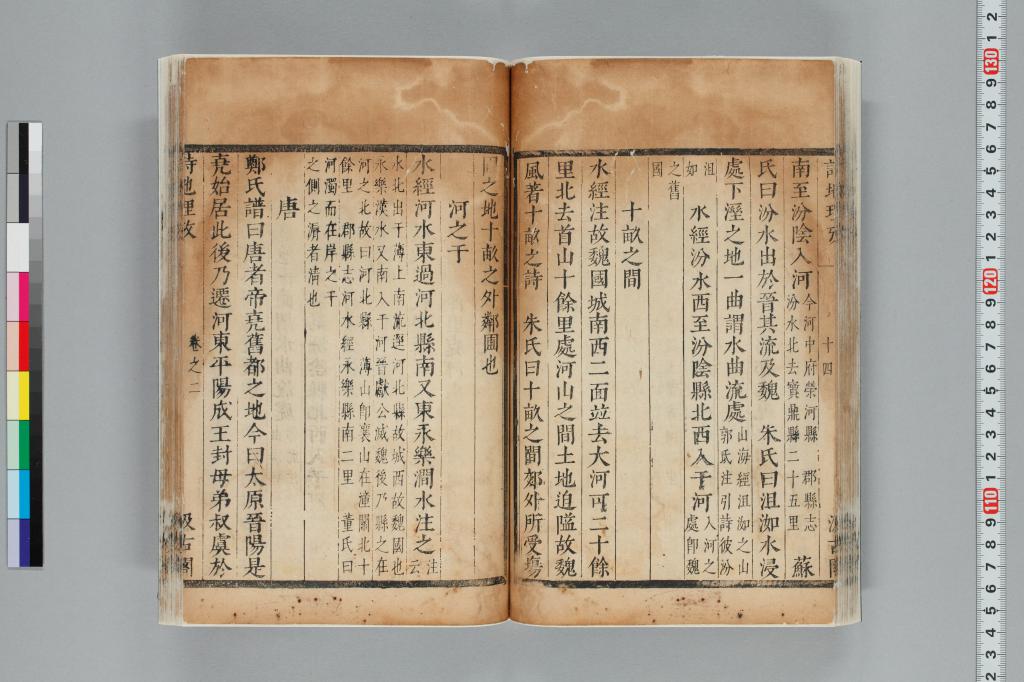 詩地理攷
十四
汲古閣
南至汾陰入河今河中府榮河縣 郡縣志
汾水北去寶鼎縣二十五里 蘇
氏曰汾水出於晉其流及魏 朱氏曰沮洳水浸
處下溼之地一曲謂水曲流處山海經沮洳之山
郭氏注引詩彼汾
沮
如 水經汾水西至汾陰縣北西入于河入河之
處卽魏
之舊
國
十畝之間
水經注故魏國城南西二面竝去大河可二十餘
里北去首山十餘里處河山之間土地迫隘故魏
風著十畝之詩 朱氏曰十畝之間郊外所受塲
之地十畝之外鄰圃也
河之干
水經河水東過河北縣南又東永樂澗水注之注
云
水北出于薄山南流逕河北縣故城西故魏國也
永樂漢水又南入于河晉獻公滅魏後乃縣之在
河之北故曰河北縣 薄山卽襄山在潼關北十
餘里 郡縣志河水經永樂縣南二里 董氏曰
河濁而在岸之干
之側之漘者清也
唐
鄭氏譜曰唐者帝堯舊都之地今曰太原晉陽是
堯始居此後乃遷河東平陽成王封母弟叔虞於
詩地理攷
卷之二
汲古閣